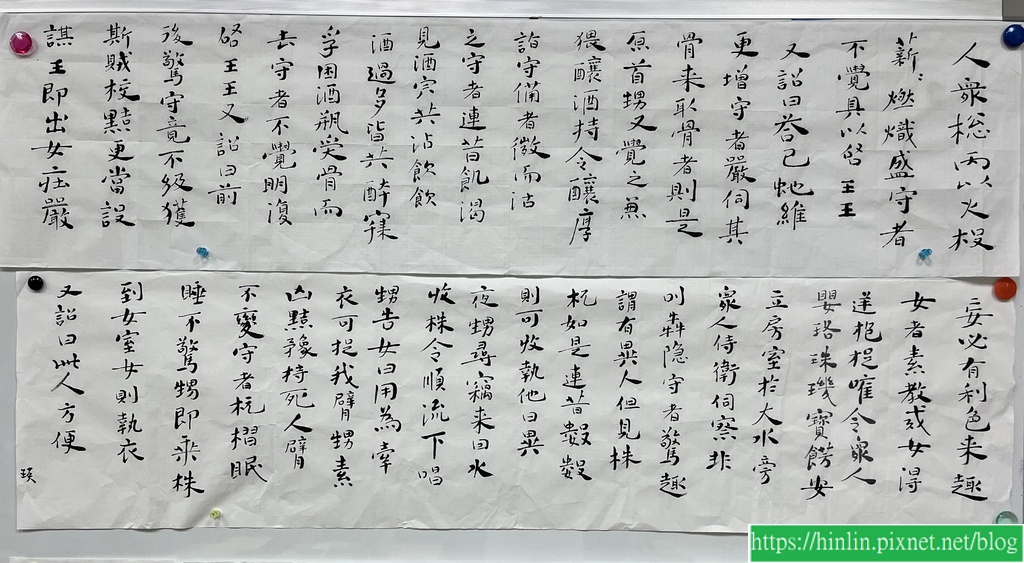 人眾総丙以火投
薪々燃熾盛守者
不覺具以啓王王
又詔曰若已虵維
更增守者嚴伺其
骨来取骨者則是
原首甥又覺之兼
猥釀酒持令釀厚
詣守備者微而沽
之守者連昔飢渴
見酒宗共沽飲飲
酒過多皆共醉寐
孚困酒瓶受骨而
去守者不覺明復
啓王王又詔曰前
後警守竟不級獲
斯賊狡黠更當設
謀王即出女莊嚴
安必有利色来趣
女者素教或女得
逆抱捉喚令眾人
嬰珞珠璣寶餝安
立房室於大水旁
眾人侍衛伺察非
叫犇隐守者驚趣
謂有異人但見株
杌如是連昔數數
則可收執他曰異
夜甥尋竊来因水
收株令順流下唱
甥告女曰用為牽
衣可捉我臂甥素
凶黠豫持死人臂
不變守者杌榴眠
睡不驚甥即乘株
到女室女則執衣
又詔曰此人方便
瑛
https://hinlin.pixnet.net/blog